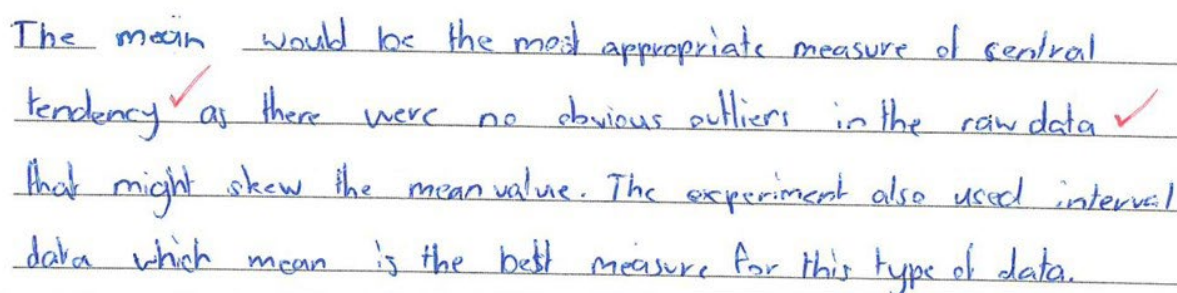 The mean would be the most appropriate measure of central
tendency as there were no obvious outliers in the raw data
that might skew the mean value. The experiment also used interval
data which mean is the best measure for this type of data.